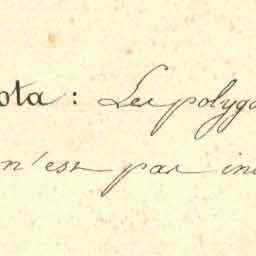 ota : Les polygo
n'est pas in